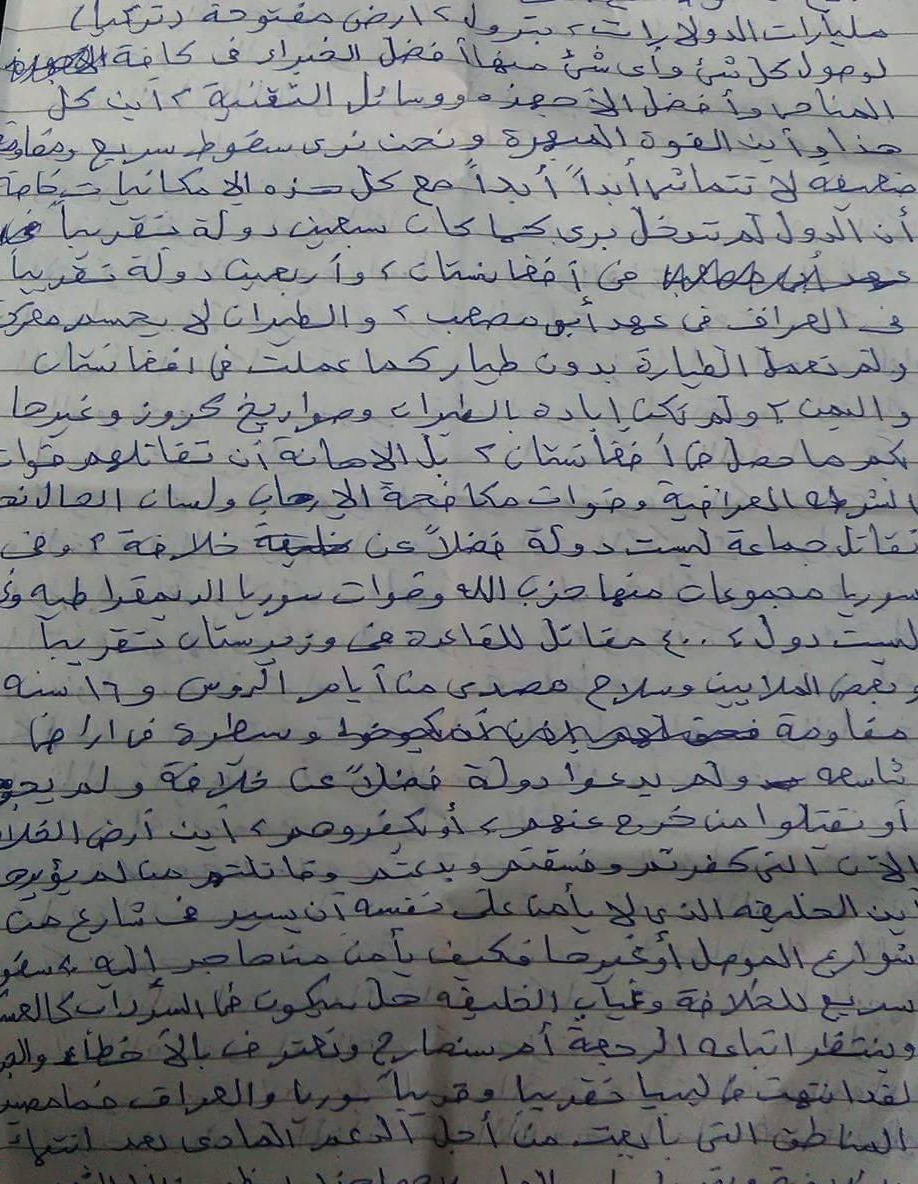 مليارات الدولارات، بترول، ارض مفتوحة (تركيا)
لوصول كل شئ وأى شئ منها أفضل الخبراء فى كافة
المناحى وأفضل الأجهزه ووسائل التقنية، أين كل
هذا وأين القوة المبهرة ونحن نرى سقوط سريع ومقاومة
ضعيفه لا تتماشى أبداً أبداً مع كل هذه الإمكانيات خاصة
أن الدول لم تتدخل برى كما كان سبعين دولة تقريباً فى
عهد فى أفغانستان، وأربعين دولة تقريباً
فى العراق فى عهد أبى مصعب، والطيران لا يحسم معركة
ولم تعمل الطيارة بدون طيار كما عملت فى افغانستان
واليمن، ولم تكن إباده بالطيران وصواريخ كروز وغيرها
كم ما حصل فى أفغانستان، بل الإهانة أن تقاتلهم قوات
الشرطه العراقية وقوات مكافحة الإرهاب ولسان الحال
نقاتل جماعة ليست دولة فضلاً عن خلافة، وفى
سوريا مجموعات منها حزب الله وقوات سوريا الديمقراطيه
ليست دول، ٤٠٠ مقاتل للقاعدة فى وزيرستان تقريباً
وبعض الملايين وسلاح مصدى من أيام الروس و١٦ سنه
مقاومة وسطرة فى اراضى
شاسعه ولم يدعوا دولة فضلاً عن خلافة ولم
أو تقتلوا من خرج عنهم، أو يكفروهم، أين أرض
الآن التى كفرتم وفسقتم وبدعتم وقاتلتم من لم
أين الخليفه الذى لا يأمن على نفسه أن يسير فى شارع من
شوارع الموصل أو غيرها فكيف يأمن من هاجر إليه،
سريع للخلافة وغياب الخليفه هل سيكون فى السرداب
وينتظر اتباعه الرجعة أم سنصارح ونعترف بالأخطاء
لقد انتهت فى ليبيا تقريبا وقريباً سوريا والعراق فما مصير
المناطق التى بايعت من أجل الدعم المادى بعد انتهاء